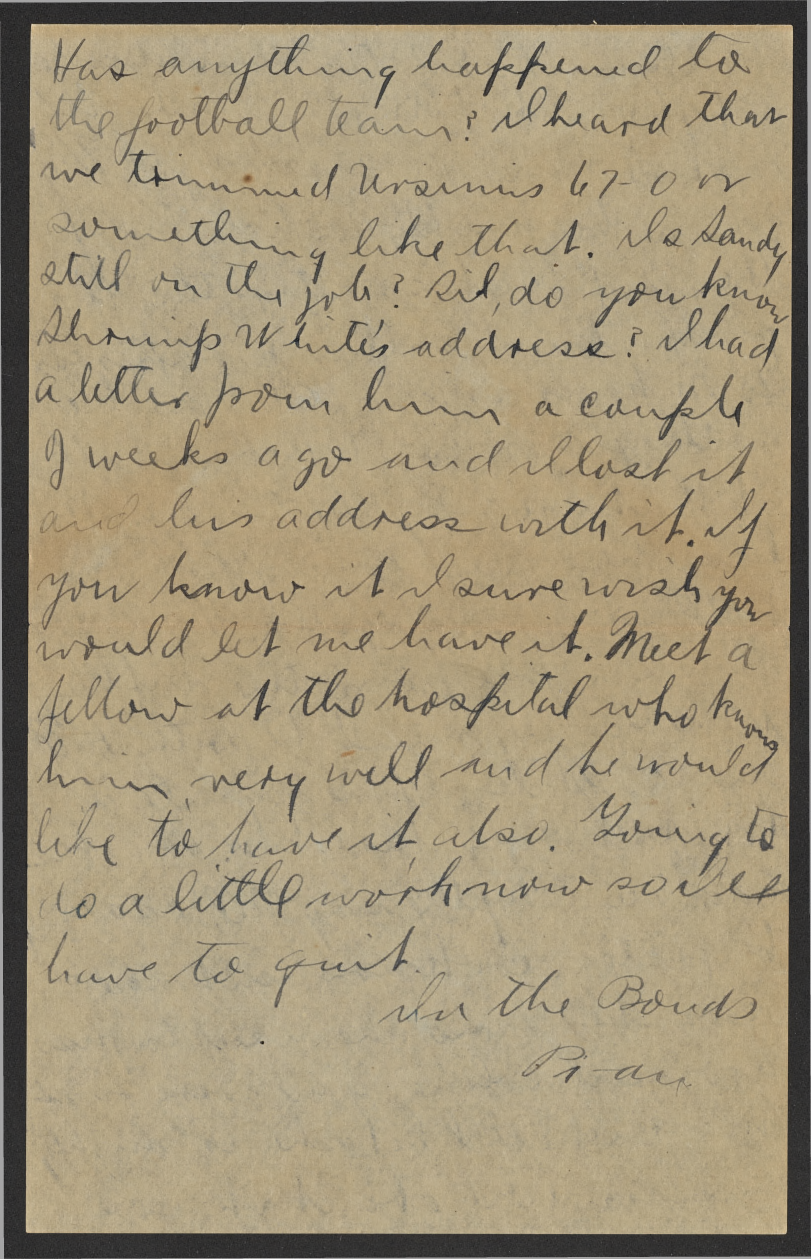 Has anything happened to
the football team? I heard that
we trimmed Ursinus 67-0 or
something like that. Is Sandy
still on the job? Sid, do you know
Shrimp White's address? I had
a letter from him a couple
of weeks ago and I lost it
and his address with it. If
you know it I sure wish you
would let me have it. Meet a
fellow at the hospital who knows
him very well and he would
like to have it also. Going to
do a little work now so I'll
have to quit.
In the Bonds